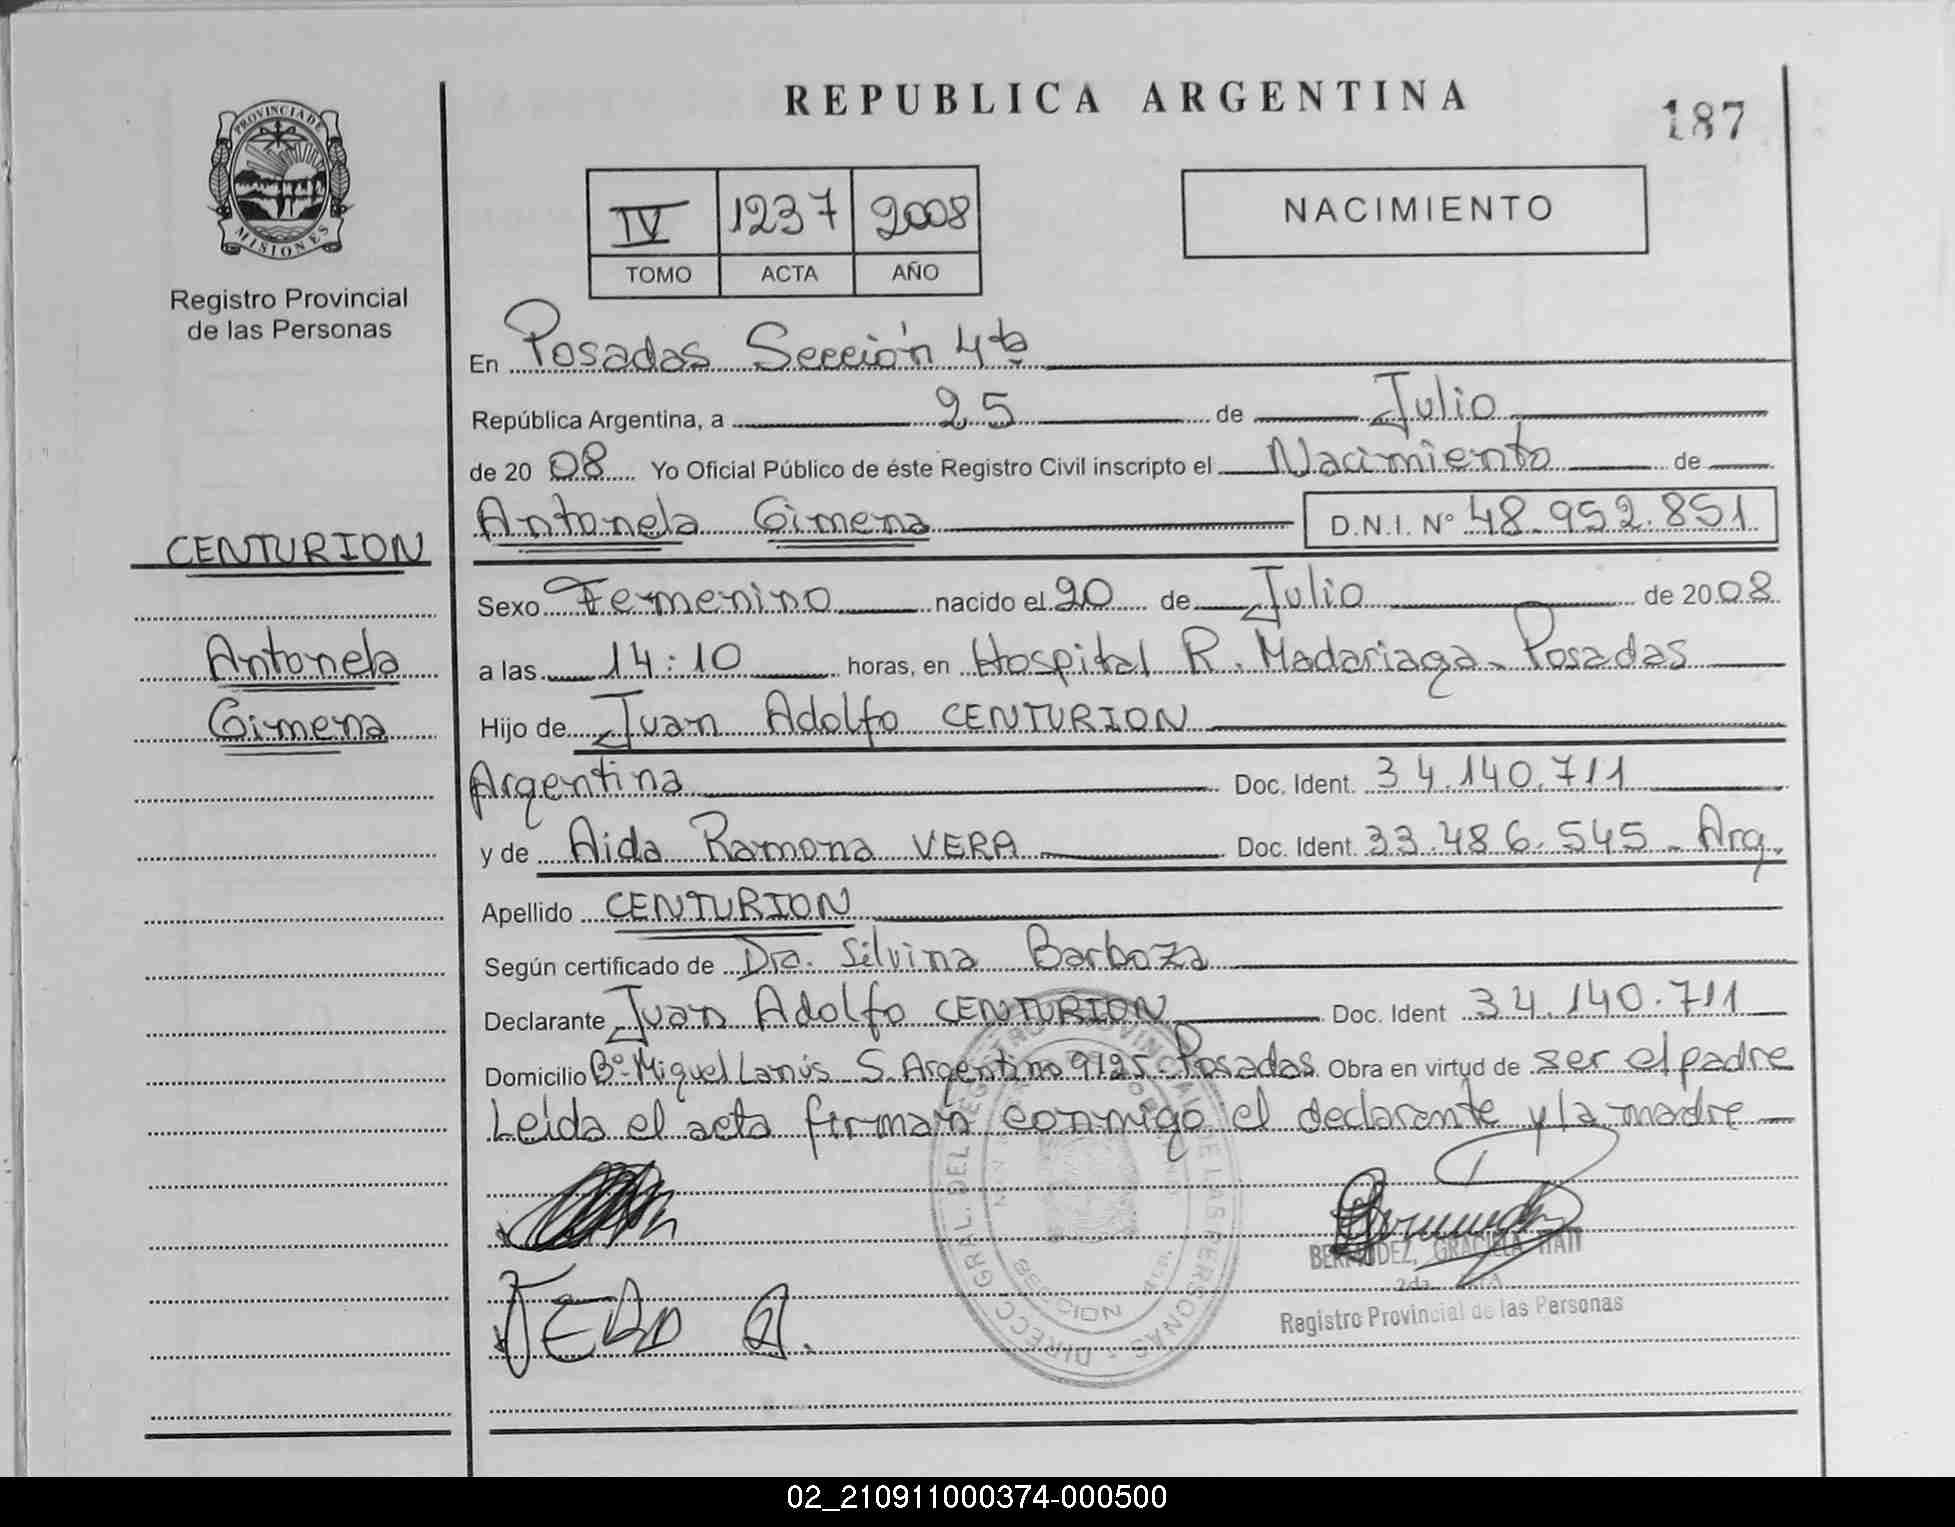 REPUBLICA ARGENTINA
187
PROVINCIA DE
MISIONES
Registro Provincial
de las Personas
IV 1237 2008
TOMO ACTA AÑO
NACIMIENTO
En Posadas Sección 4ta
República Argentina, a 25 de Julio
de 2008 Yo Oficial Público de éste Registro Civil inscripto el Nacimiento de
CENTURION
Antonela Gimena
Antonela Gimena D.N.I. Nº 48.952.851
Sexo Femenino nacido el 20 de Julio de 2008
a las 14:10 horas, en Hospital R. Madariaga - Posadas
Hijo de Juan Adolfo CENTURION
Argentina Doc. Ident. 34.140.711
y de Aida Ramona VERA Doc. Ident. 33.486.545 - Arg.
Apellido CENTURION
Según certificado de Dra. Silvina Barboza
Declarante Juan Adolfo CENTURION Doc. Ident 34.140.711
Domicilio Bº Miguel Lanús S. Argentino 9125 - Posadas Obra en virtud de ser el padre
Leida el acta firman conmigo el declarante y la madre
DIRECC. GRAL. DEL REGISTRO PROVINCIAL DE LAS PERSONAS
BERMUDEZ, GRACIELA
2da.
Registro Provincial de las Personas
VERA A.
02_210911000374-000500